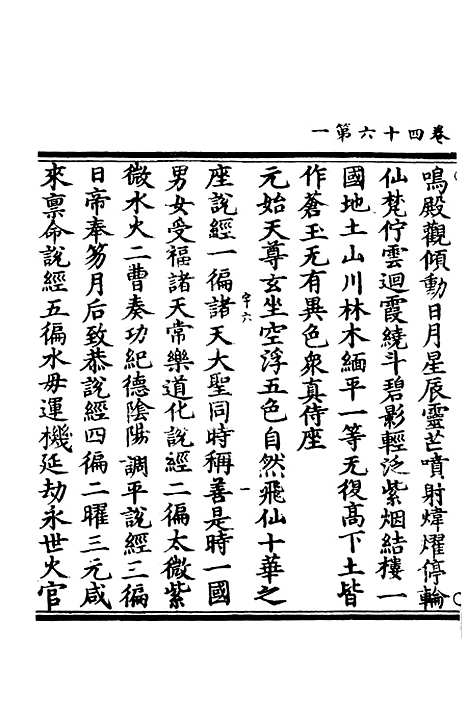 卷四十六第一
鳴殿觀傾動日月星辰靈芒噴射煒燿停輪
仙梵佇雲迴霞繞斗碧影輕泛紫烟結樓一
國地土山川林木緬平一等无復高下土皆
作蒼玉无有異色衆真侍座
元始天尊玄坐空浮五色自然飛仙十華之
座說經一徧諸天大聖同時稱善是時一國
男女受福諸天常樂道化說經二徧太微紫
微水火二曹奏功紀德陰陽調平說經三徧
日帝奉笏月后致恭說經四徧二曜三元咸
來禀命說經五徧水母運機延劫永世火官